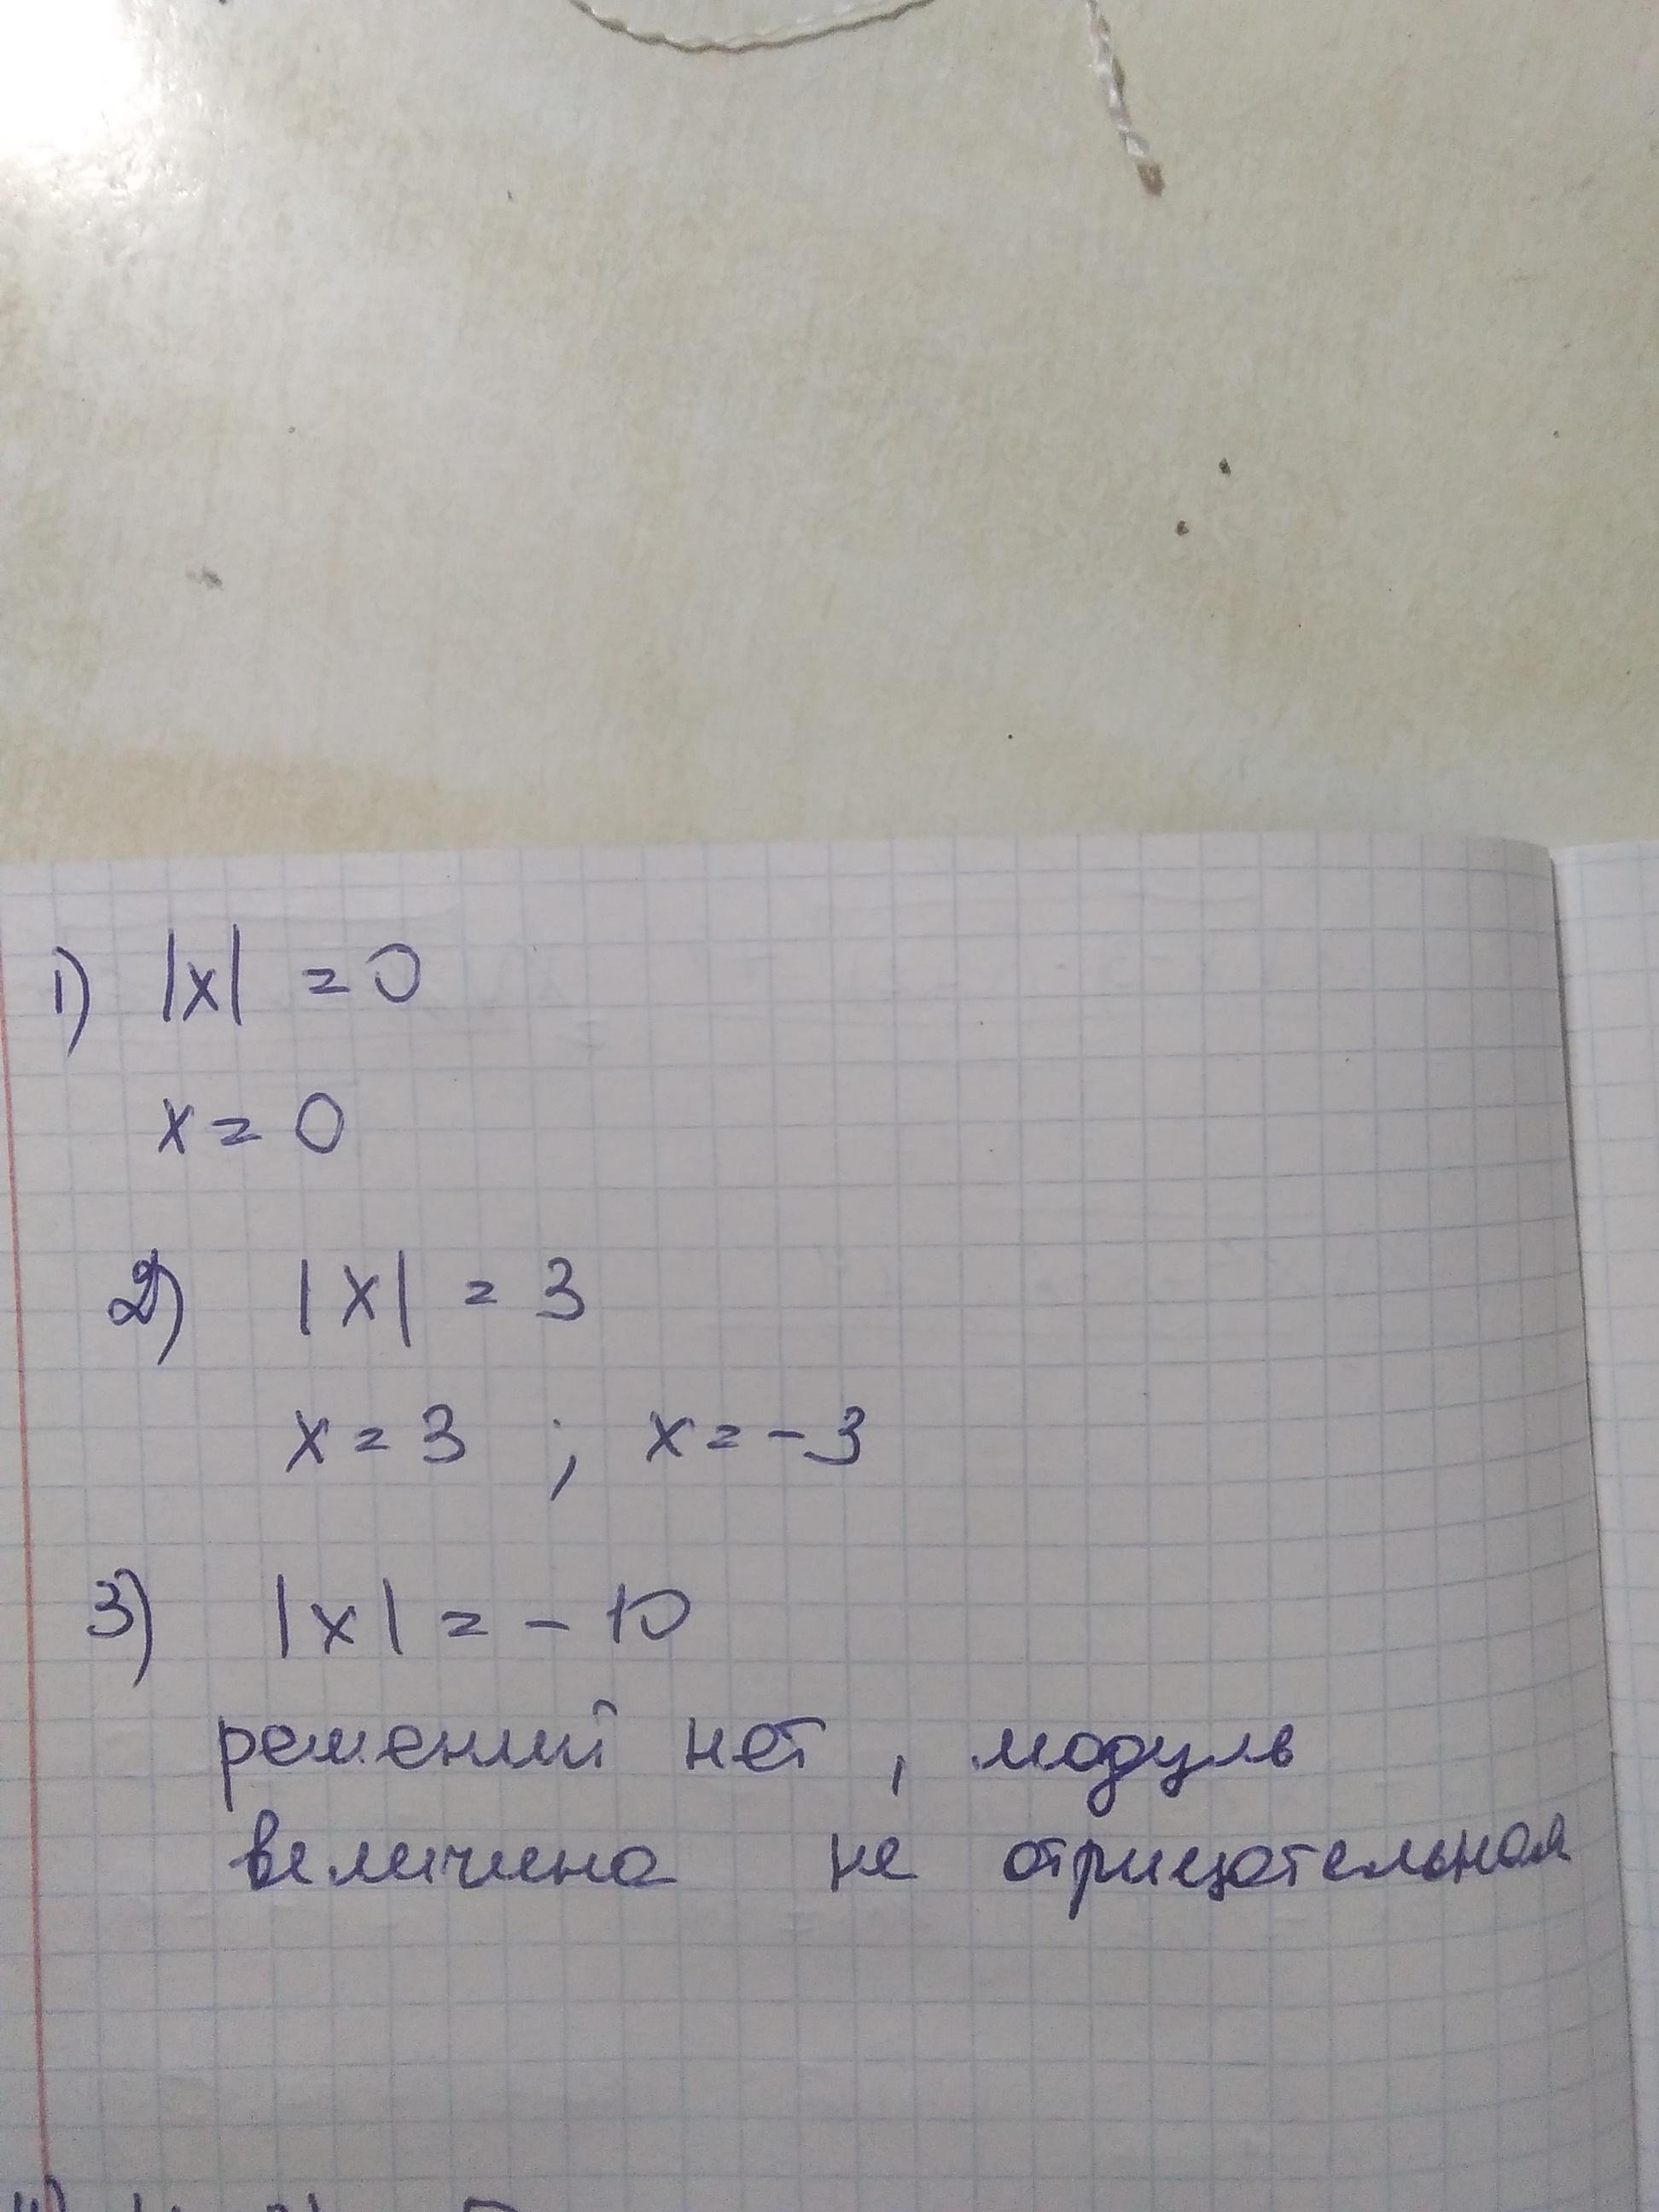 1) |x| = 0
x = 0
2) |x| = 3
x = 3 ; x = -3
3) |x| = - 10
решений нет , модуль
величина не отрицательная